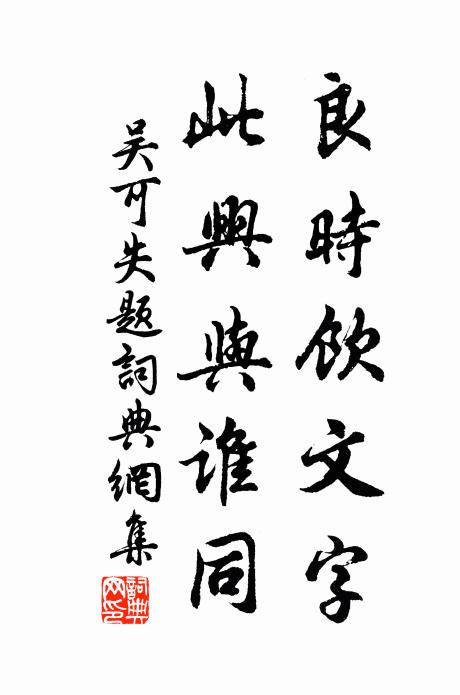 良時飲文字
此興與誰同
吳可失題詞典網集
詞典網印